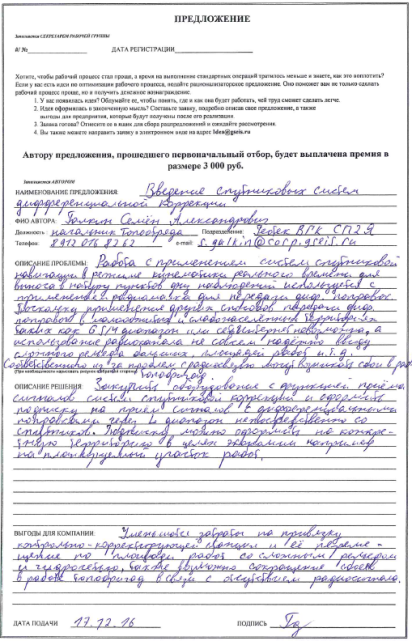 ПРЕДЛОЖЕНИЕ
Заполняется СЕКРЕТАРЕМ РАБОЧЕЙ ГРУППЫ
В/ № ДАТА РЕГИСТРАЦИИ
Хотите, чтобы рабочий процесс стал проще, а время на выполнение стандартных операций тратилось меньше и знаете, как это воплотить?
Если у вас есть идеи по оптимизации рабочего процесса, подайте рационализаторское предложение. Оно поможет вам не только сделать
рабочий процесс проще, но и получить денежное вознаграждение.
1. У вас появилась идея? Обдумайте ее, чтобы понять, где и как она будет работать, чей труд сможет сделать легче.
2. Идея оформилась в законченную мысль? Составьте заявку, подробно описав свое предложение, а также
выгоды для предприятия, которые будут получены после его реализации.
3. Заявка готова? Отнесите ее к нам для сбора рацпредложений и ожидайте рассмотрения.
4. Вы также можете направить заявку в электронном виде на адрес idea@gseis.ru
Автору предложения, прошедшего первоначальный отбор, будет выплачена премия в
размере 3 000 руб.
Заполняется АВТОРОМ
НАИМЕНОВАНИЕ ПРЕДЛОЖЕНИЯ: Введение спутниковых систем
дифференциальной коррекции
ФИО АВТОРА: Галкин Семён Александрович
Должность начальник топоотряда Подразделение: Геобек ВГК СП29
Телефон: 8912 076 82 62 e-mail: s.galkin@corp.gseis.ru
ОПИСАНИЕ ПРОБЛЕМЫ: Работа с применением систем спутниковой
навигации в режиме кинематики реального времени для
выноса в натуру пунктов физ наблюдений используется с
применением радиомодема для передачи диф. поправок.
Поскольку применение других способов передачи диф.
поправок в малонаселённых территориях
таких как GSM диапазон или сети интернет невозможно, а
использование радиоканала не совсем надёжно ввиду
сложного рельефа больших площадей работ и т.д.
Соответственно из-за проблем с радиосвязью могут возникать сбои в работе
топоотряд.
ОПИСАНИЕ РЕШЕНИЯ: Закупить оборудование с функцией приёма
сигналов систем спутниковой коррекции и оформить
подписку на приём сигналов с дифференциальными
поправками через L диапазон непосредственно со
спутников. Подписку можно оформить на конкре-
тную территорию в целях экономии например
на планируемый участок работ.
ВЫГОДЫ ДЛЯ КОМПАНИИ: Уменьшить затраты по привязку
контрольно-корректирующей станции и её переме-
щение по площади работ со сложным рельефом
и гидросетью. Также возможно сокращение сбоев
в работе топоотряд в связи с отсутствием радиосигнала.
ДАТА ПОДАЧИ 17.12.16 ПОДПИСЬ